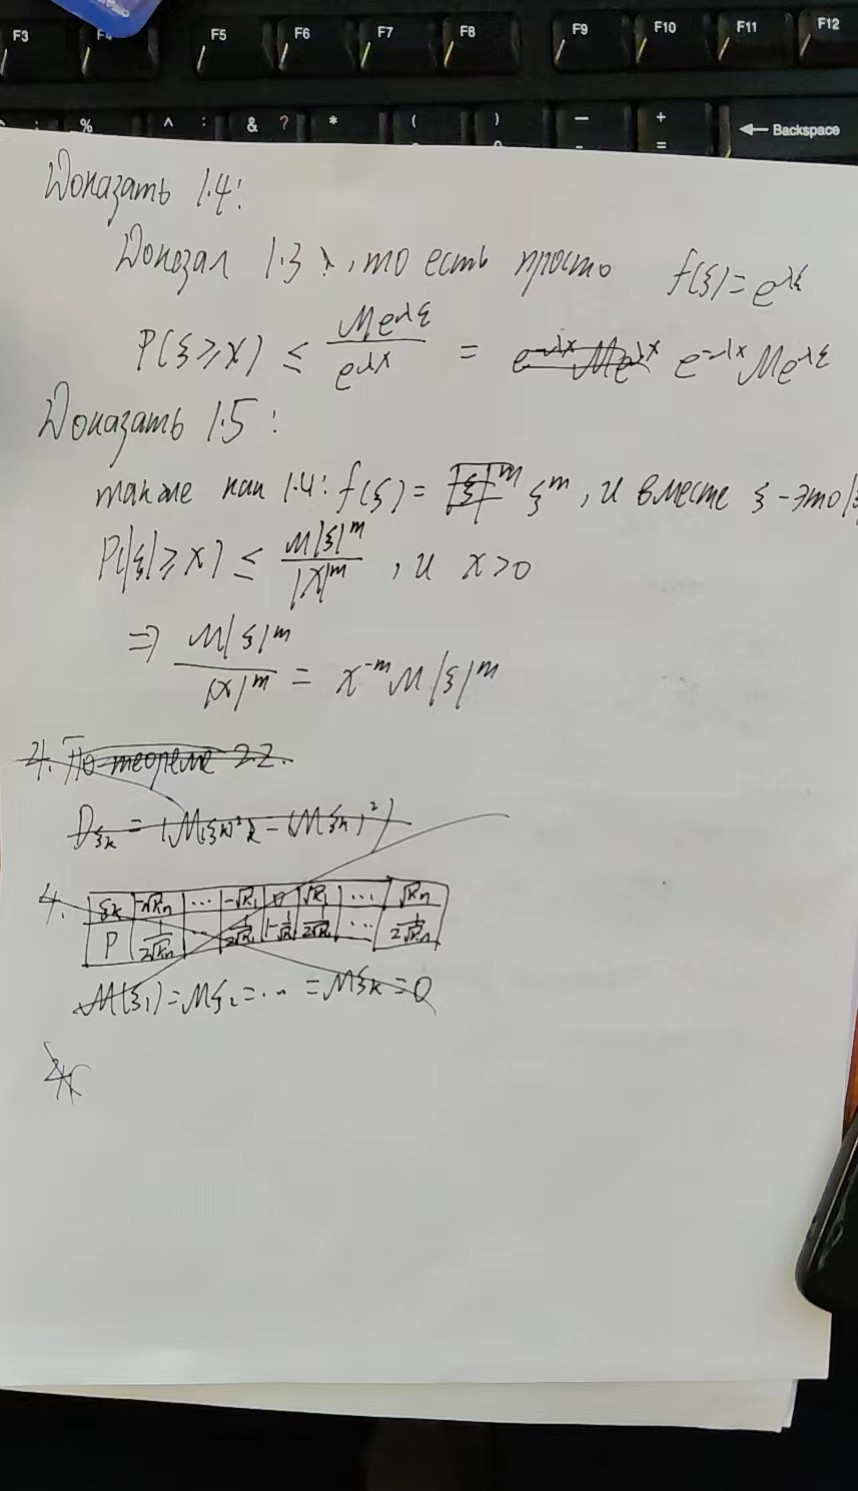 F3 F4 F5 F6 F7 F8 F9 F10 F11 F12
% ^ : & ? * ( ) − + = Backspace
Доказать 1.4:
Доказал 1.3, то есть просто f(ξ) = e^{λξ}
P(ξ ≥ x) ≤ Me^{λξ} / e^{λx} = e^{-λx} Me^{λξ}
Доказать 1.5:
также как 1.4: f(ξ) = ξ^m, и вместе ξ - это |ξ
P(|ξ| ≥ x) ≤ M|ξ|^m / |x|^m, и x > 0
⇒ M|ξ|^m / |x|^m = x^{-m} M|ξ|^m
4. По теореме 2.2.
Dξ_k = (M(ξ_k)^2) - (Mξ_k)^2)
4. ξ_k | -√k_n | ... | -√k_1 | 0 | √k_1 | ... | √k_n
P | 1/(2√k_n) | ... | 1/(2√k_1) | 1 - 1/√k | 1/(2√k_1) | ... | 1/(2√k_n)
M(ξ_1) = Mξ_2 = ... = Mξ_k = 0